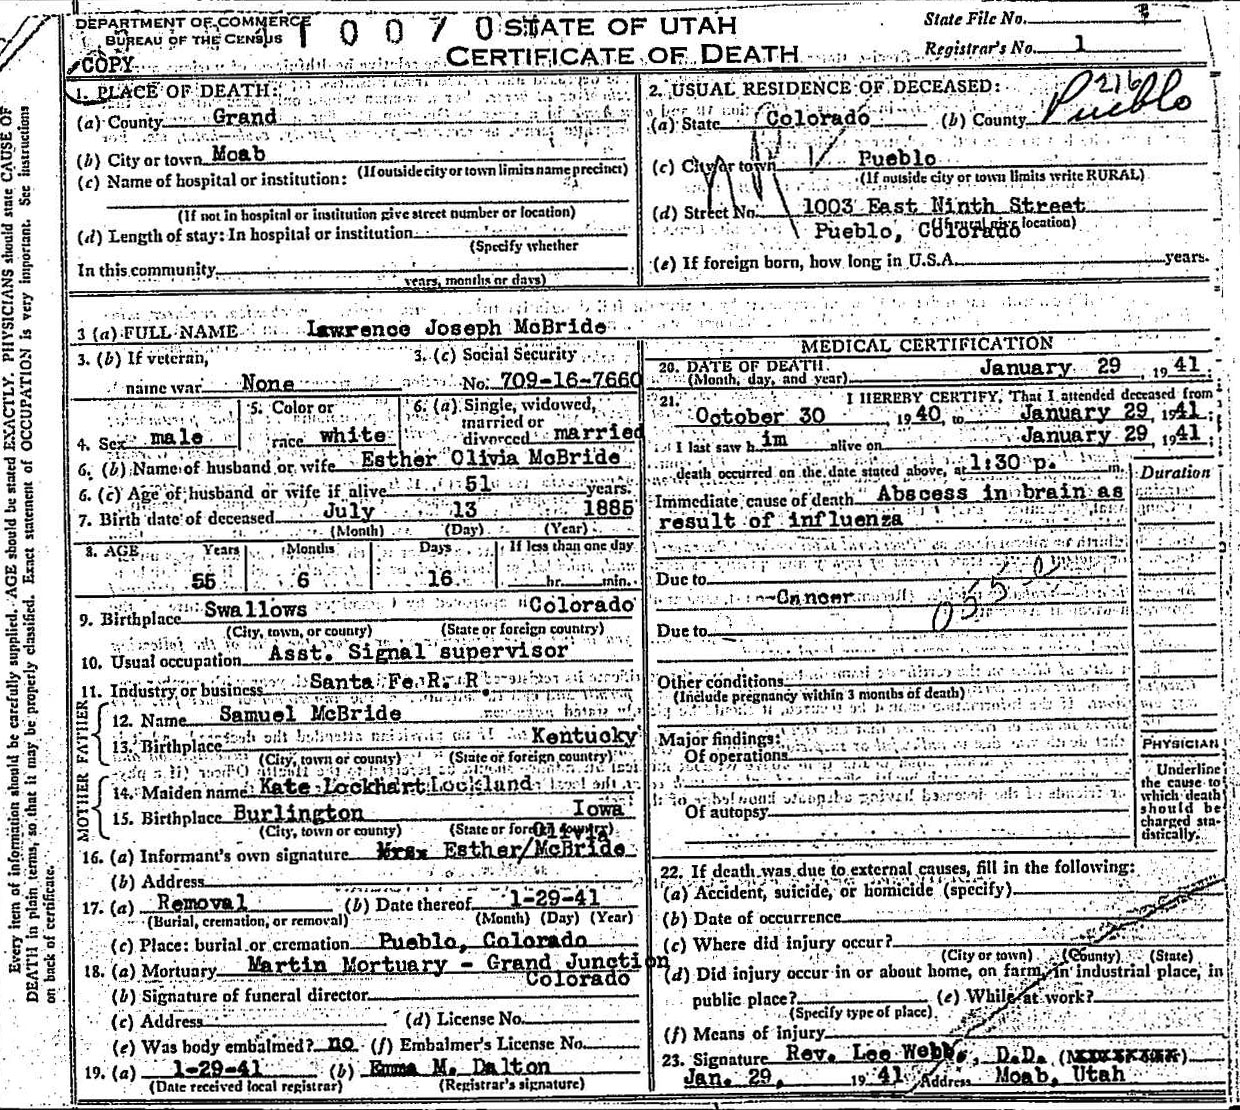 DEPARTMENT OF COMMERCE
BUREAU OF THE CENSUS
COPY
1 0 0 7 0
STATE OF UTAH
CERTIFICATE OF DEATH
State File No.
Registrar's No. 1
1. PLACE OF DEATH:
(a) County Grand
(b) City or town Moab
(If outside city or town limits name precinct)
(c) Name of hospital or institution:
(If not in hospital or institution give street number or location)
(d) Length of stay: In hospital or institution
(Specify whether
In this community
years, months or days)
2. USUAL RESIDENCE OF DECEASED:
216
(a) State Colorado (b) County Pueblo
(c) City or town Pueblo
(If outside city or town limits write RURAL)
(d) Street No. 1003 East Ninth Street
(If rural give location)
Pueblo, Colorado
(e) If foreign born, how long in U.S.A. years.
3 (a) FULL NAME Lawrence Joseph McBride
3. (b) If veteran,
name war None
3. (c) Social Security
No. 709-16-7660
4. Sex male
5. Color or
race white
6. (a) Single, widowed,
married or
divorced married
6. (b) Name of husband or wife Esther Olivia McBride
6. (c) Age of husband or wife if alive 51 years.
7. Birth date of deceased July 13 1885
(Month) (Day) (Year)
8. AGE Years Months Days If less than one day
55 6 16 hr. min.
9. Birthplace Swallows Colorado
(City, town, or county) (State or foreign country)
10. Usual occupation Asst. Signal supervisor
11. Industry or business Santa Fe R. R.
FATHER
12. Name Samuel McBride
13. Birthplace Kentucky
(City, town or county) (State or foreign country)
MOTHER
14. Maiden name Kate Lockhart Lockland
15. Birthplace Burlington Iowa
(City, town or county) (State or foreign country)
Olivia
16. (a) Informant's own signature Mrs. Esther/McBride
(b) Address
17. (a) Removal (b) Date thereof 1-29-41
(Burial, cremation, or removal) (Month) (Day) (Year)
(c) Place: burial or cremation Pueblo, Colorado
18. (a) Mortuary Martin Mortuary - Grand Junction
Colorado
(b) Signature of funeral director
(c) Address (d) License No.
(e) Was body embalmed? no (f) Embalmer's License No.
19. (a) 1-29-41 (b) Emma M. Dalton
(Date received local registrar) (Registrar's signature)
MEDICAL CERTIFICATION
20. DATE OF DEATH January 29, 1941.
(Month, day, and year)
21. I HEREBY CERTIFY, That I attended deceased from
October 30 1940 to January 29 1941;
I last saw him alive on January 29, 1941;
death occurred on the date stated above, at 1:30 p. m.
Duration
Immediate cause of death Abscess in brain as
result of influenza
Due to
Cancer
055
Due to
Other conditions
(Include pregnancy within 3 months of death)
Major findings:
Of operations
Of autopsy
PHYSICIAN
Underline
the cause to
which death
should be
charged sta-
tistically.
22. If death was due to external causes, fill in the following:
(a) Accident, suicide, or homicide (specify)
(b) Date of occurrence
(c) Where did injury occur?
(City or town) (County) (State)
(d) Did injury occur in or about home, on farm, in industrial place, in
public place? (e) While at work?
(Specify type of place)
(f) Means of injury
23. Signature Rev. Lee Webb, D.D.
Jan. 29, 1941 Address Moab, Utah
Every item of information should be carefully supplied. AGE should be stated EXACTLY. PHYSICIANS should state CAUSE OF
DEATH in plain terms, so that it may be properly classified. Exact statement of OCCUPATION is very important. See instructions
on back of certificate.